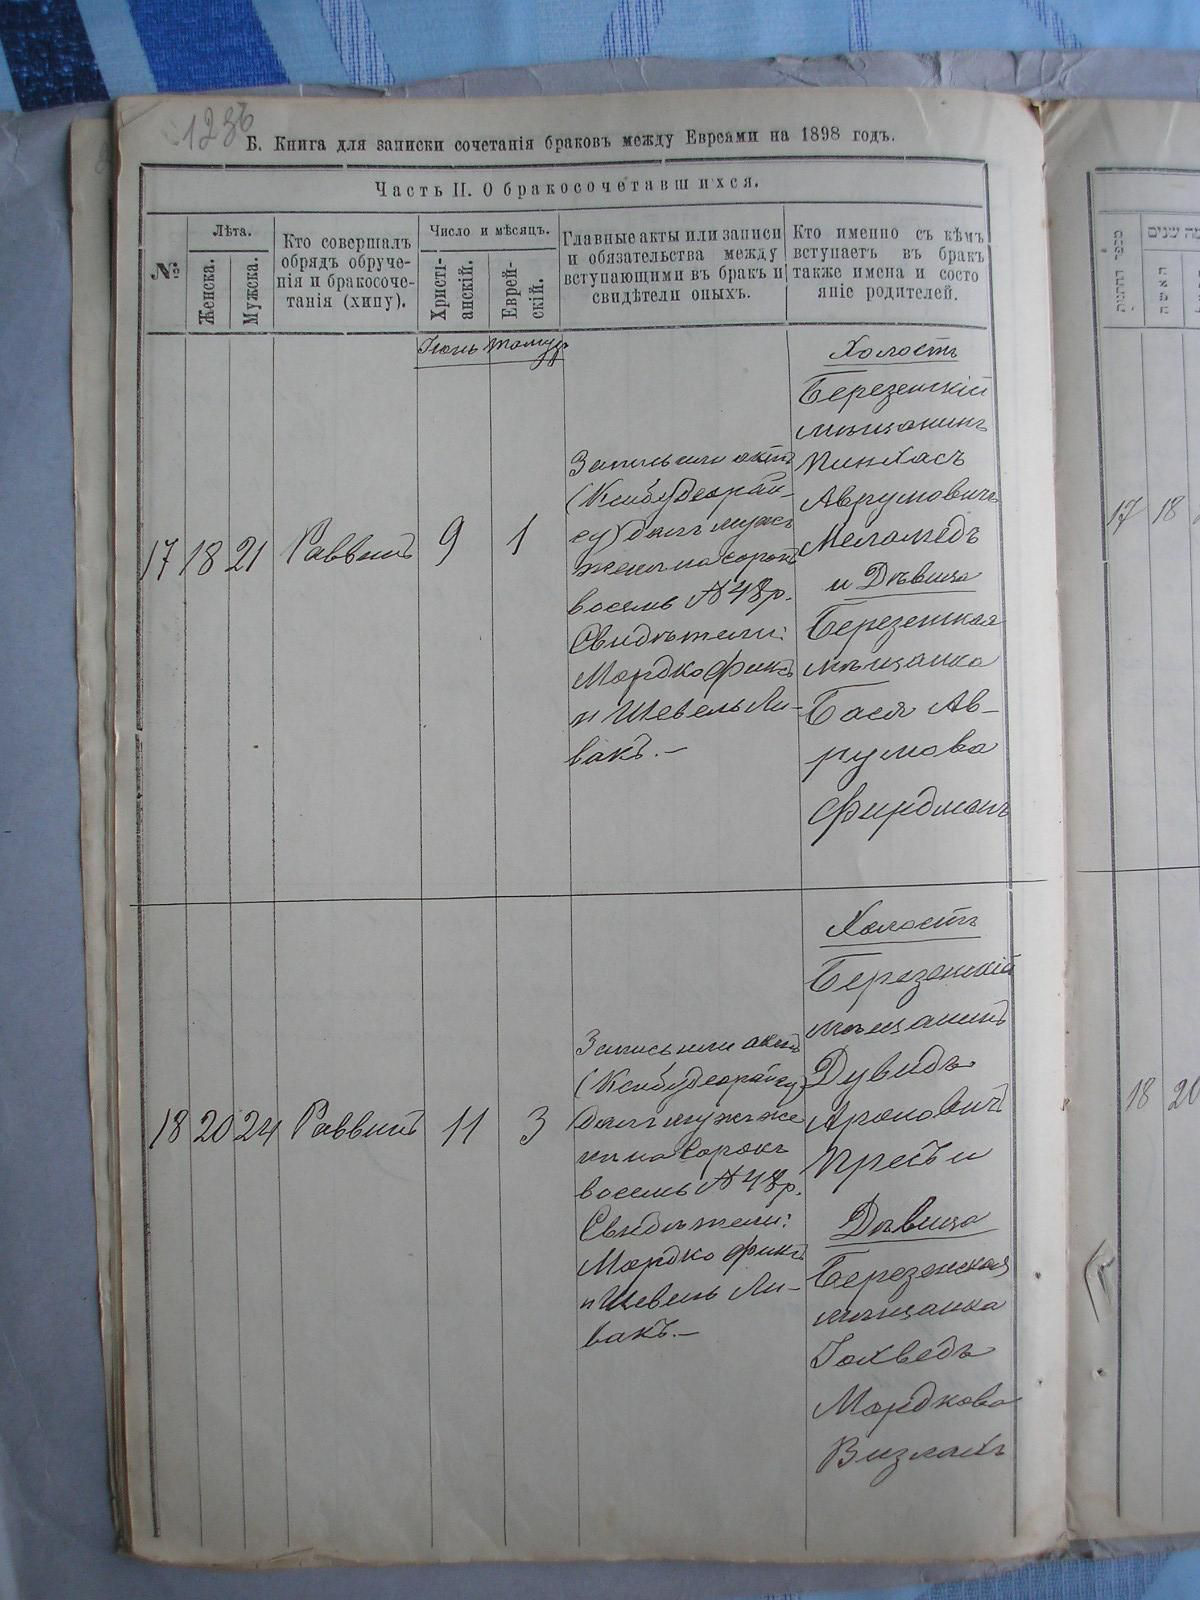 123б
Б. Книга для записки сочетанія браковъ между Евреями на 1898 годъ.
Часть II. О бракосочетавшихся.
№
Лѣта.
Женска.
Мужска.
Кто совершалъ
обрядъ обруче-
нія и бракосоче-
танія (хипу).
Число и мѣсяцъ.
Христі-
анскій.
Еврей-
скій.
Главные акты или записи
и обязательства между
вступающими въ бракъ и
свидѣтели оныхъ.
Кто именно съ кѣмъ
вступаетъ въ бракъ
также имена и состо
яніе родителей.
Іюнь
Тамуз
17
18
21
Раввинъ
9
1
Запись или актъ
далъ мужъ
жены на сорокъ
восемь 48р.
Свидѣтели:
Мордко Финкъ
и Шевель Ли-
вакъ.—
Холостъ
Березенскій
мѣщанинъ
Пинхасъ
Аврумовичъ
Меламедъ
и Дѣвица
Березенская
мѣщанка
Бася Ав-
румова
Фирдманъ
18
20
24
Раввинъ
11
3
Запись или актъ
далъ мужъ же
ны на сорокъ
восемь 48р.
Свидѣтели:
Мордко Финкъ
и Шевель Ли-
вакъ.—
Холостъ
Березенскій
мѣщанинъ
Дувидъ
Ароновичъ
Пресъ и
Дѣвица
Березенская
мѣщанка
Іохведъ
Мордкова
17 18
18 20